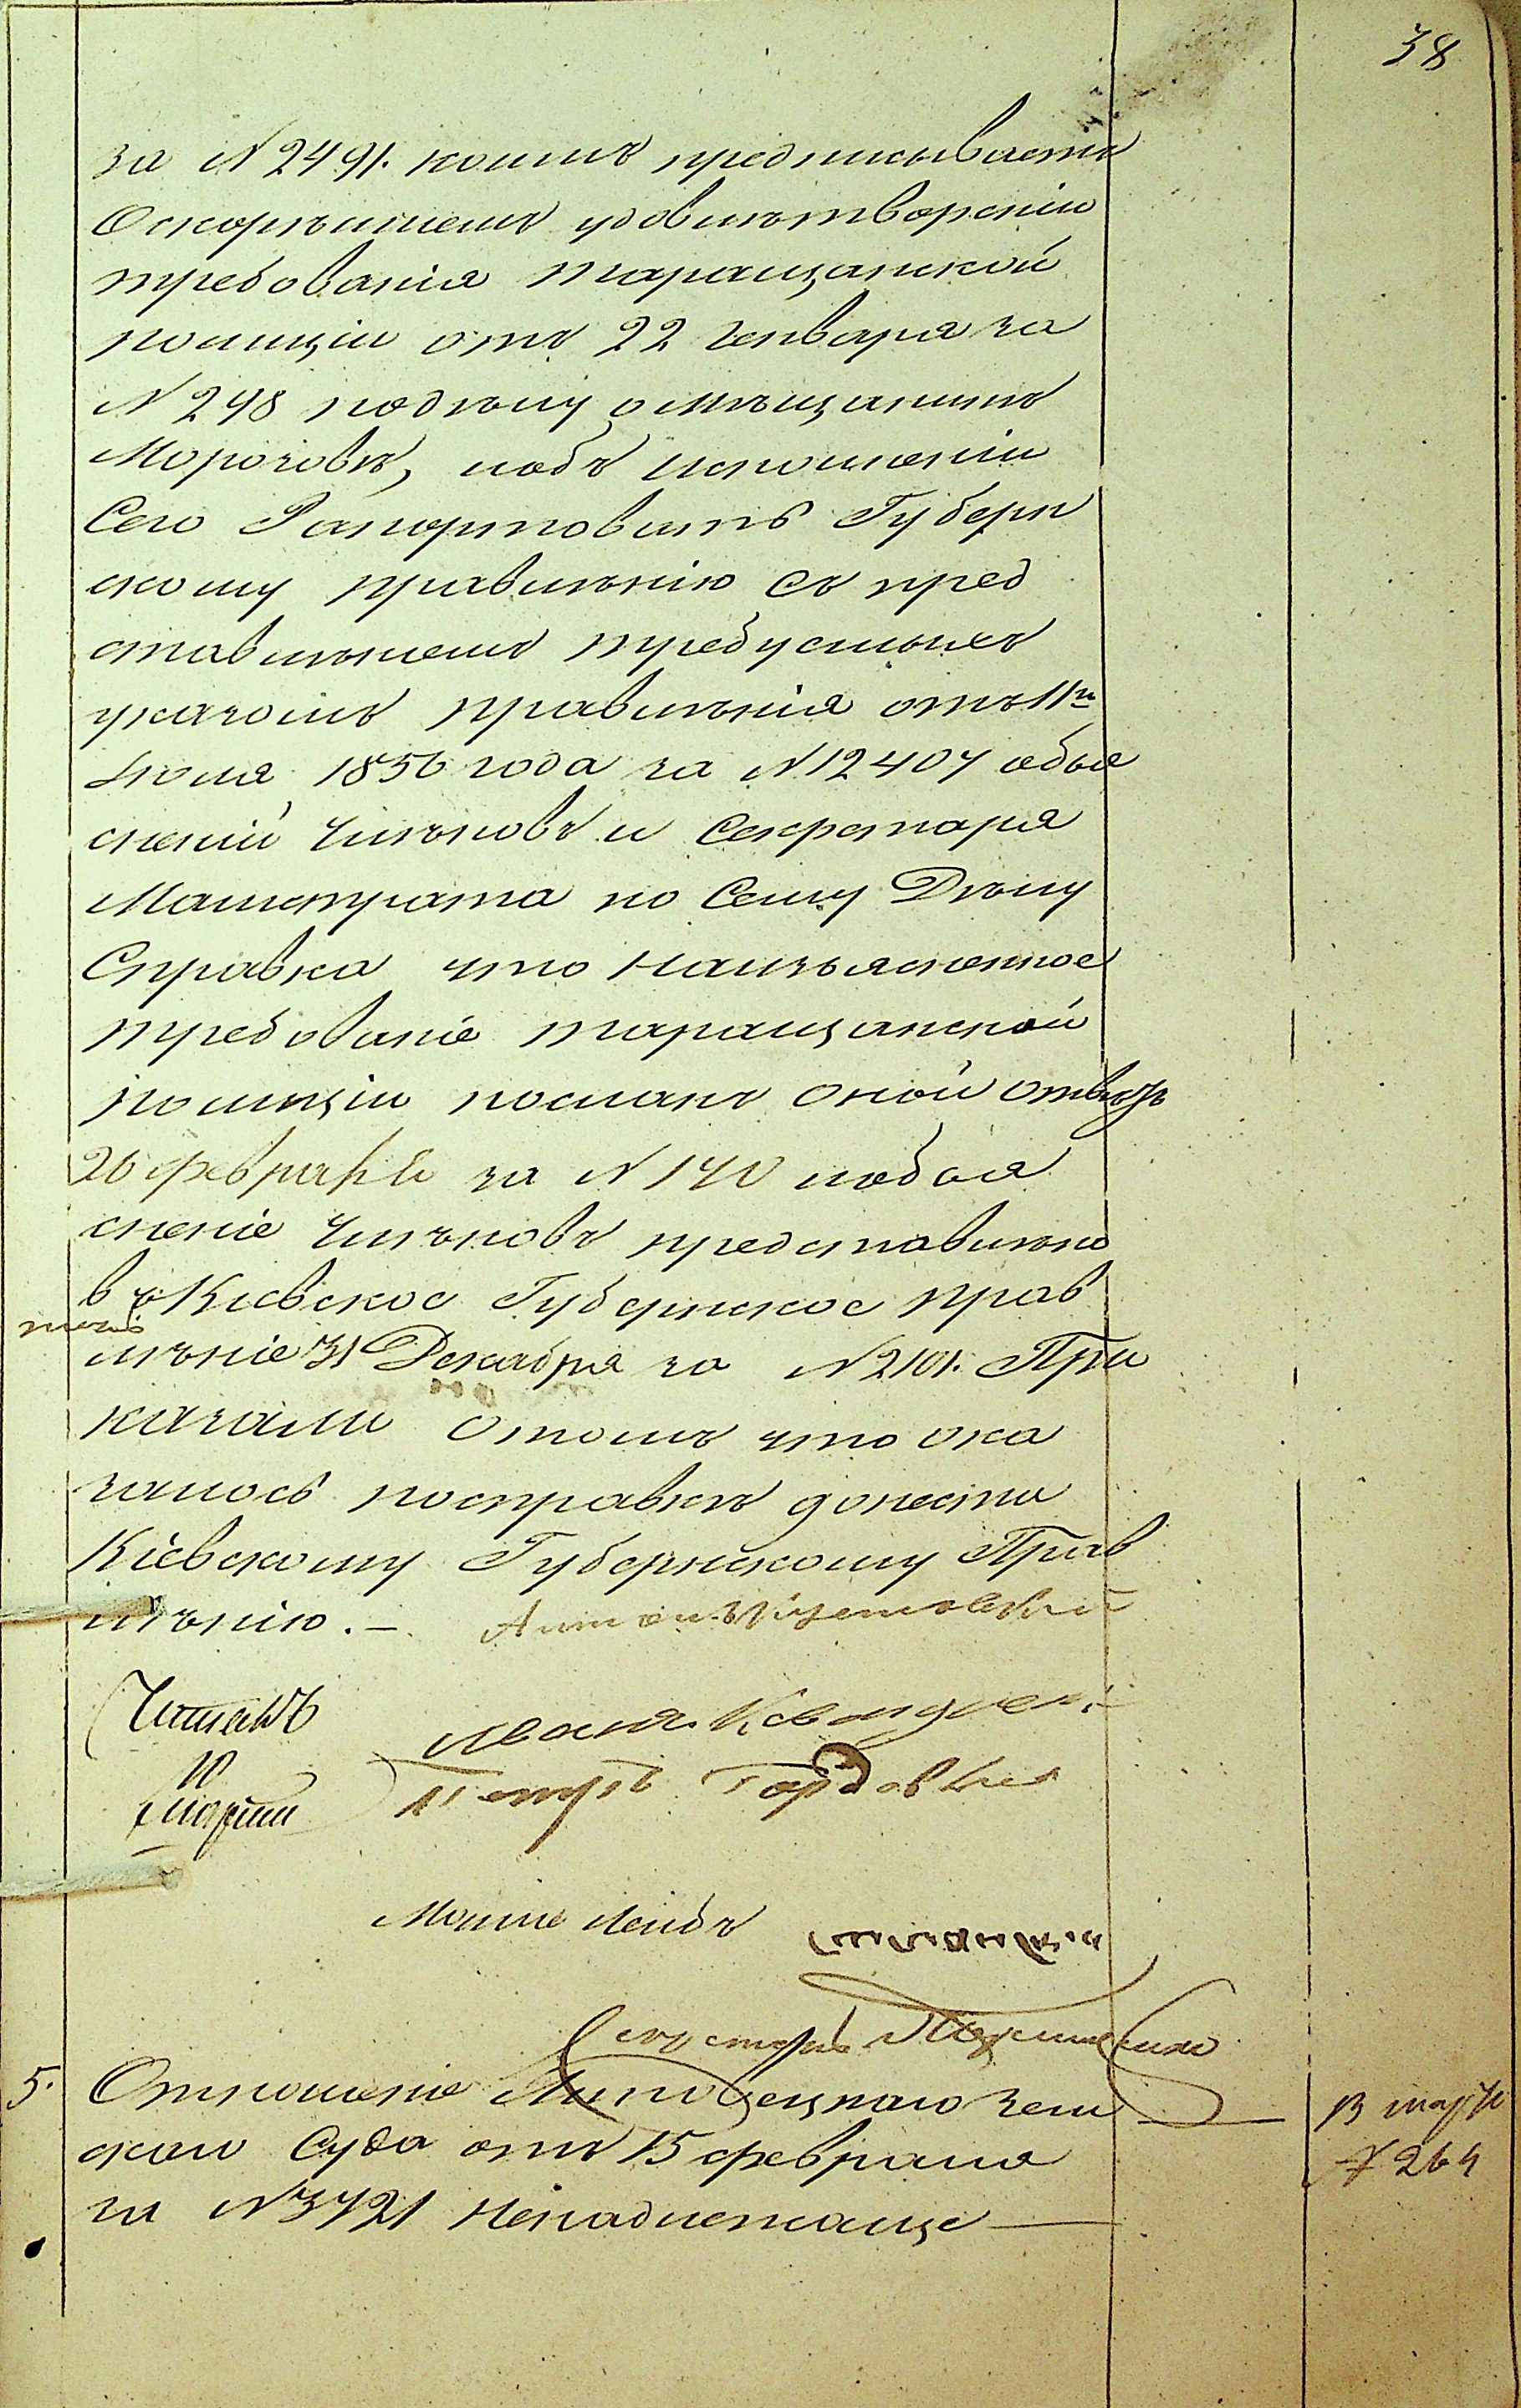 38
за N 2491. коимъ предписываетъ
Оскорѣйшемъ удовлѣтвореніи
требованія таращанской
полиціи отъ 22 Генваря за
N 298 подѣлу о мѣщанинѣ
Морозовѣ, иобъ исполненіи
Сего Рапортовать Губерн
скому правлѣнію съ пред
ставлѣніемъ требуемыхъ
указомъ правлѣнія отъ 11го
Іюля 1856 года за N 12407 объя
сненій Члѣновъ и Секретаря
Магистрата по Сему Дѣлу
Справка что Наизъясненное
требованіе таращанской
полиціи посланъ оной отвѣтъ
26 февраля за N 140 иобъя
сненіе Члѣновъ представлѣно
въ Кіевское Губернское прав
лѣніе 31 Декабря за N 2101. При
казали Отомъ что ока
залось посправкѣ донести
Кіевскому Губернскому Прав
лѣнію. —
Читалъ
Иванъ
Петръ
Мошне Лейбъ
Секретарь
5. Отношеніе Липовецкаго Зем
скаго Суда отъ 15 февраля
за N 3721 Ненадлежаще —
13 марта
N 264